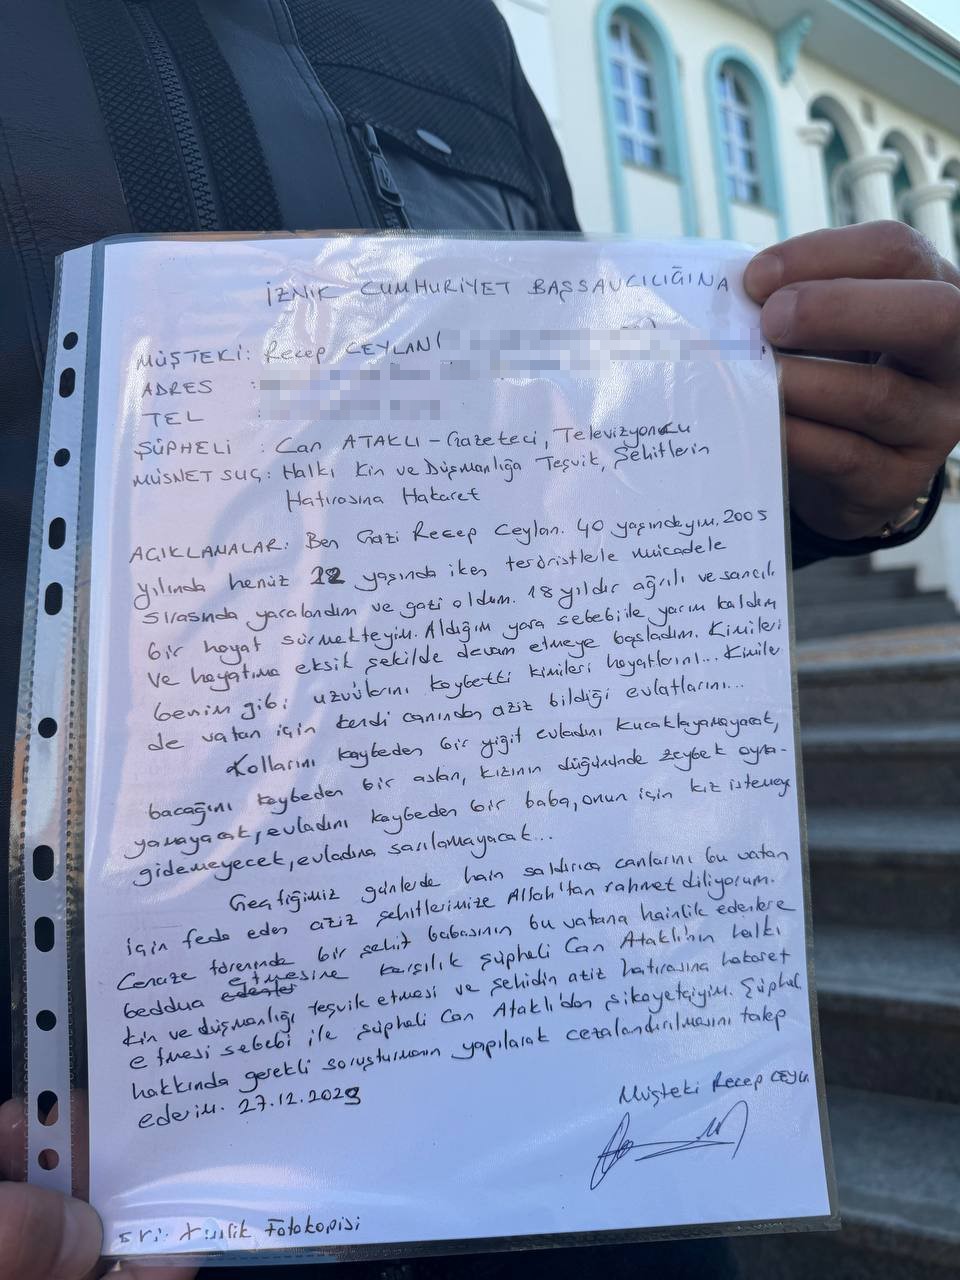 İZNİK CUMHURİYET BAŞSAVCILIĞINA
MÜŞTEKİ: Recep CEYLAN(
ADRES :
TEL :
ŞÜPHELİ : Can ATAKLI - Gazeteci, Televizyoncu
MÜSNET SUÇ: Halkı Kin ve Düşmanlığa Teşvik, Şehitlerin
Hatırasına Hakaret
AÇIKLAMALAR: Ben Gazi Recep Ceylan. 40 yaşındayım. 2005
yılında henüz 22 yaşında iken teröristlerle mücadele
sırasında yaralandım ve gazi oldum. 18 yıldır ağrılı ve sancılı
bir hayat sürmekteyim. Aldığım yara sebebi ile yarım kaldım
ve hayatıma eksik şekilde devam etmeye başladım. Kimileri
benim gibi uzuvlarını kaybetti kimileri hayatlarını... Kimileri
de vatan için kendi canından aziz bildiği evlatlarını...
Kollarını kaybeden bir yiğit evladını kucaklayamayacak,
bacağını kaybeden bir aslan, kızının düğününde zeybek oyna-
yamayacak, evladını kaybeden bir baba, onun için kız istemeye
gidemeyecek, evladına sarılamayacak...
Geçtiğimiz günlerde hain saldırıca canlarını bu vatan
için feda eden aziz şehitlerimize Allah'tan rahmet diliyorum.
Cenaze töreninde bir şehit babasının bu vatana hainlik edenlere
beddua etmesine karşılık şüpheli Can Ataklı'nın halkı
kin ve düşmanlığı teşvik etmesi ve şehidin aziz hatırasına hakaret
etmesi sebebi ile şüpheli Can Ataklı'dan şikayetçiyim. Şüpheli
hakkında gerekli soruşturmanın yapılarak cezalandırılmasını talep
ederim. 27.12.2023
Müşteki Recep CEYLAN
Kimlik Fotokopisi